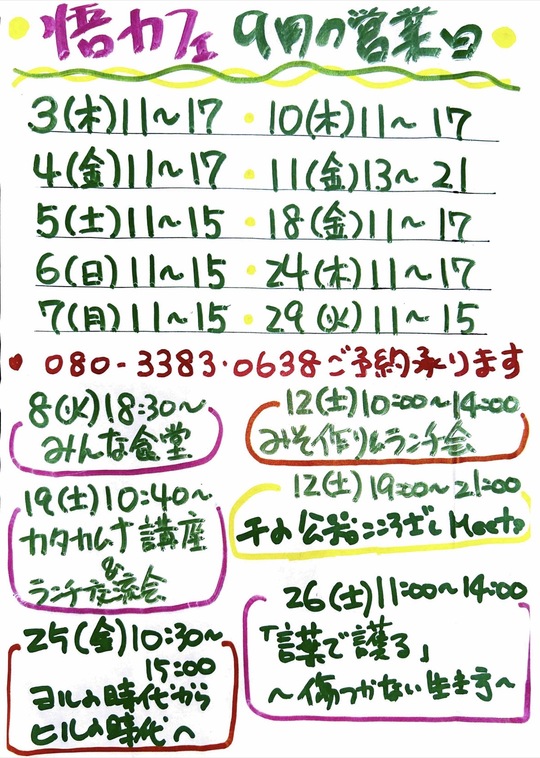 悟カフェ 9月の営業日
3(木)11〜17・10(木)11〜17
4(金)11〜17・11(金)13〜21
5(土)11〜15・18(金)11〜17
6(日)11〜15・24(木)11〜17
7(月)11〜15・29(火)11〜15
♥ 080-3383・0638ご予約承ります
8(火)18:30〜
みんな食堂
12(土)10:00〜14:00
みそ作り&ランチ会
19(土)10:40〜
カタカムナ講座
&
ランチ交流会
12(土)19:00〜21:00
Meets
25(金)10:30〜
15:00
ヨルの時代から
ヒルの時代へ
26(土)11:00〜14:00
「言葉で護る」
〜傷つかない生き方〜